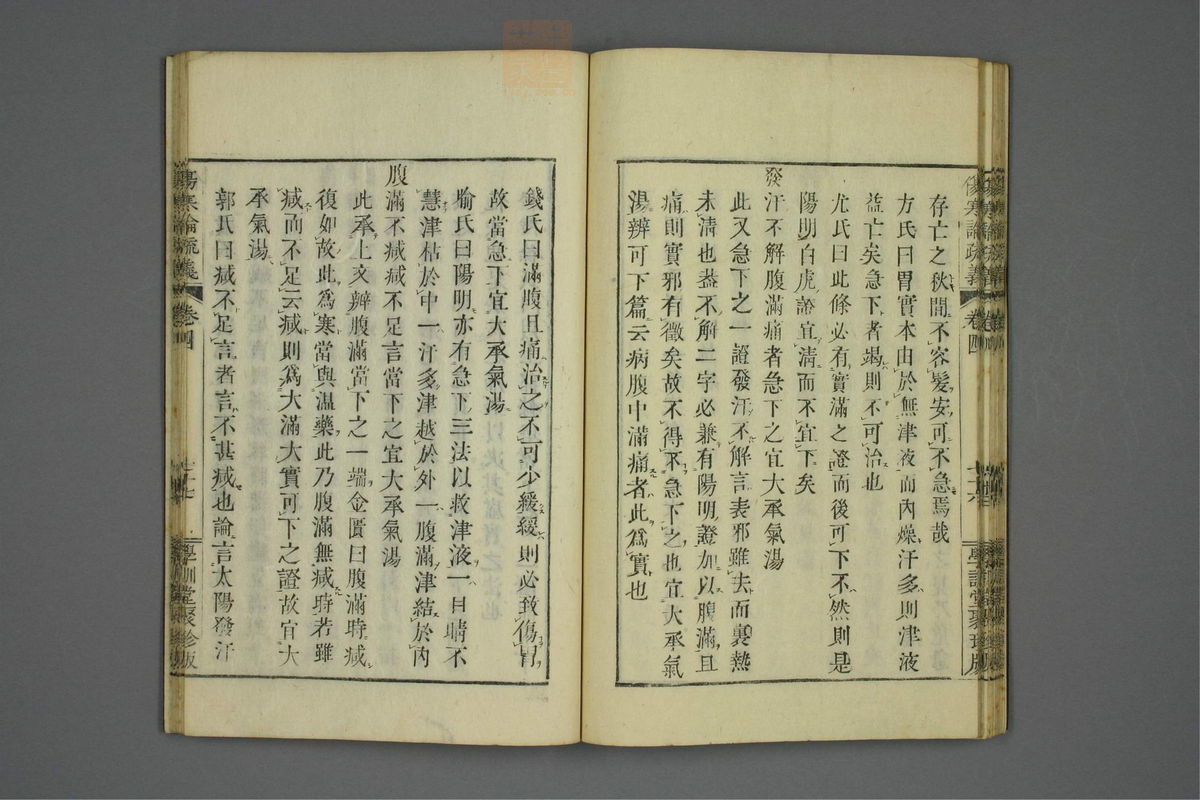 存亡之秋間不容髮安可不急焉哉
方氏曰胃實本由於無津液而內燥汗多則津液
益亡矣急下者竭則不可治也
尤氏曰此條必有實滿之證而後可下不然則是
陽明白虎證宜清而不宜下矣
發汗不解腹滿痛者急下之宜大承氣湯
此又急下之一證發汗不解言表邪雖去而裏熱
未清也葢不解二字必兼有陽明證加以腹滿且
痛則實邪有徵矣故不得不急下之也宜大承氣
湯辨可下篇云病腹中滿痛者此爲實也
傷寒論疏義
卷四
錢氏曰滿腹且痛治之不可少緩緩則必致傷胃
故當急下宜大承氣湯
喻氏曰陽明亦有急下三法以救津液一目睛不
慧津枯於中一汗多津越於外一腹滿津結於內
腹滿不減減不足言當下之宜大承氣湯
此承上文辨腹滿當下之一端金匱曰腹滿時減
復如故此爲寒當與温藥此乃腹滿無減時若雖
減而不足云減則爲大滿大實可下之證故宜大
承氣湯
郭氏曰減不足言者言不甚減也論言太陽發汗
傷寒論疏義
卷四
七十七
學訓堂聚珍版